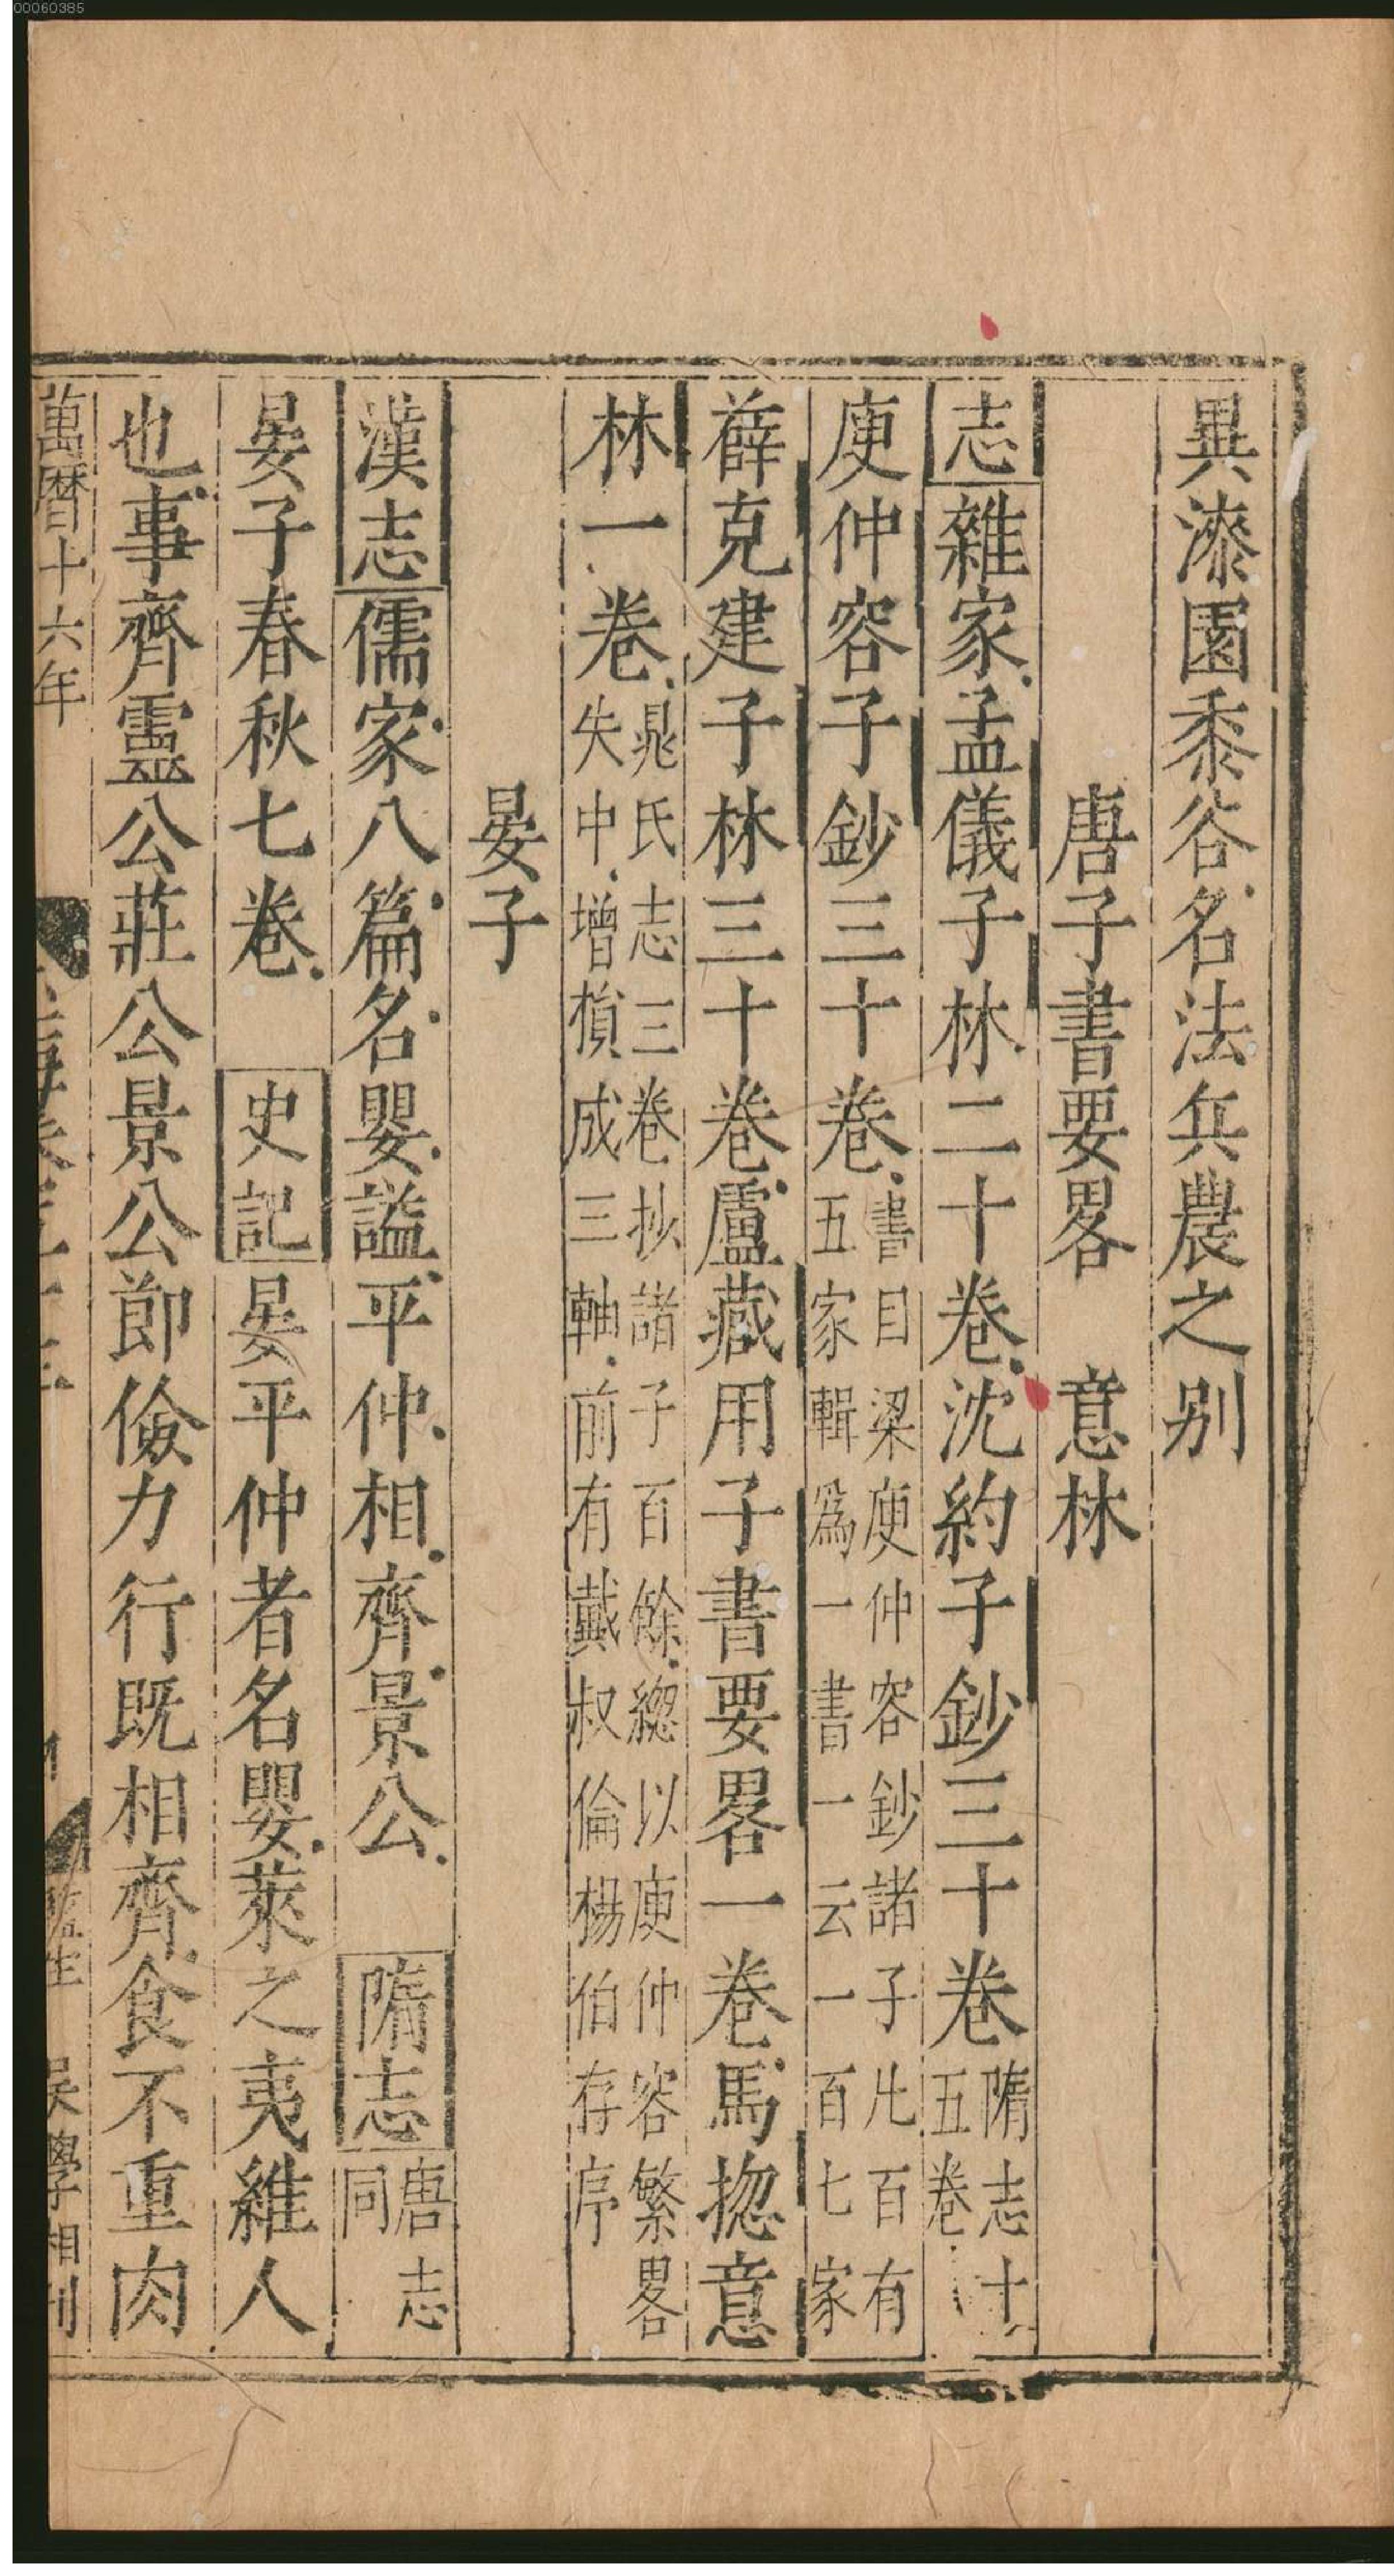 00060385
異漆園黍谷名法兵農之别
唐子書要畧　意林
志雜家孟儀子林二十卷沈約子鈔三十卷隋志十五卷
庾仲容子鈔三十卷書目梁庾仲容鈔諸子凡百有五家輯爲一書一云一百七家
薛克建子林三十卷盧藏用子書要畧一卷馬揔意
林一卷晁氏志三卷抄諸子百餘緫以庾仲容繁畧失中增損成三軸前有戴叔倫楊伯存序
晏子
漢志儒家八篇名嬰謚平仲相齊景公　隋志唐志同
晏子春秋七卷　史記晏平仲者名嬰萊之夷維人
也事齊靈公莊公景公節儉力行既相齊食不重肉
萬暦十六年